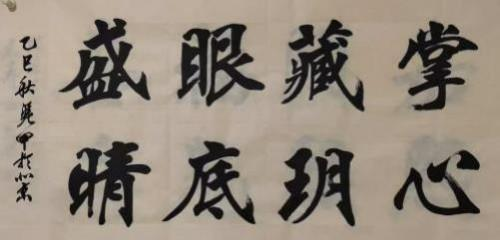 掌心
藏玥
眼底
盛晴
乙巳秋甲於北京